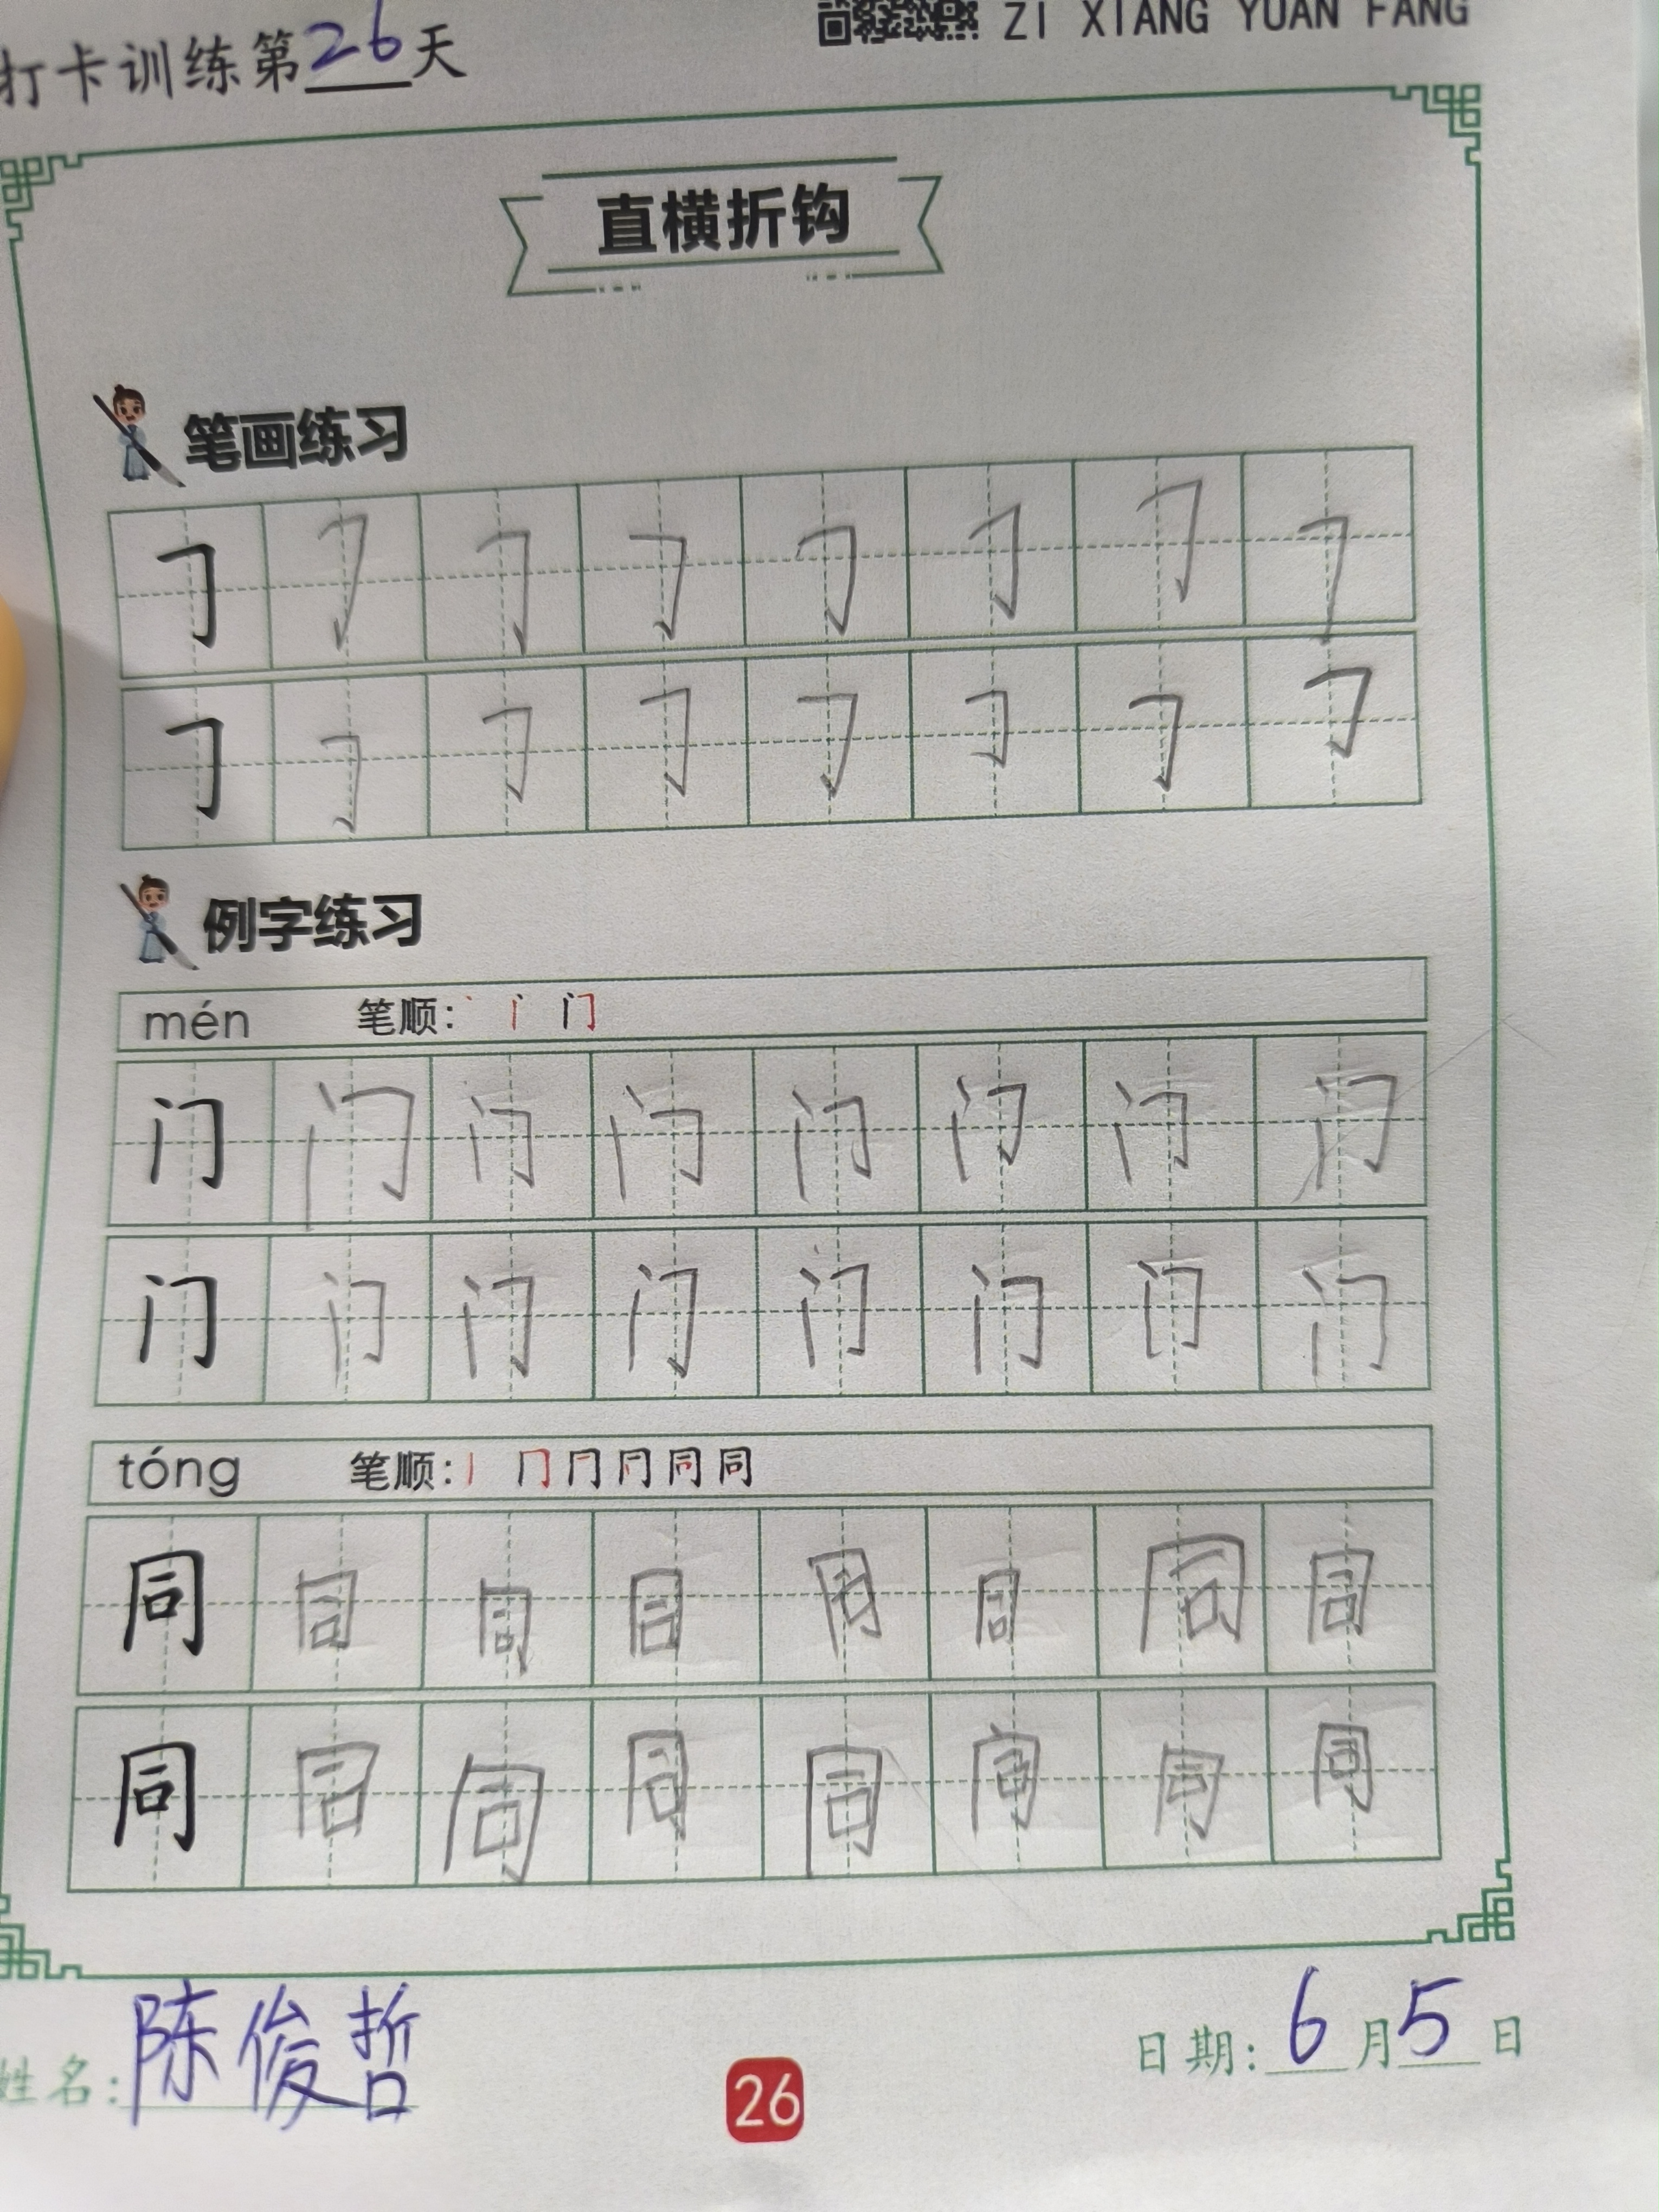 ZI XIANG YUAN FANG
打卡训练第26天
直横折钩
笔画练习
𠃌 𠃌 𠃌 𠃌 𠃌 𠃌 𠃌 𠃌
𠃌 𠃌 𠃌 𠃌 𠃌 𠃌 𠃌 𠃌
例字练习
mén 笔顺: 丶 门
门 门 门 门 门 门 门 门
门 门 门 门 门 门 门 门
tóng 笔顺: 丨 冂 同 同
同 同 同 同 同 同 同 同
同 同 同 同 同 同 同 同
姓名: 陈俊哲
26
日期: 6月5日